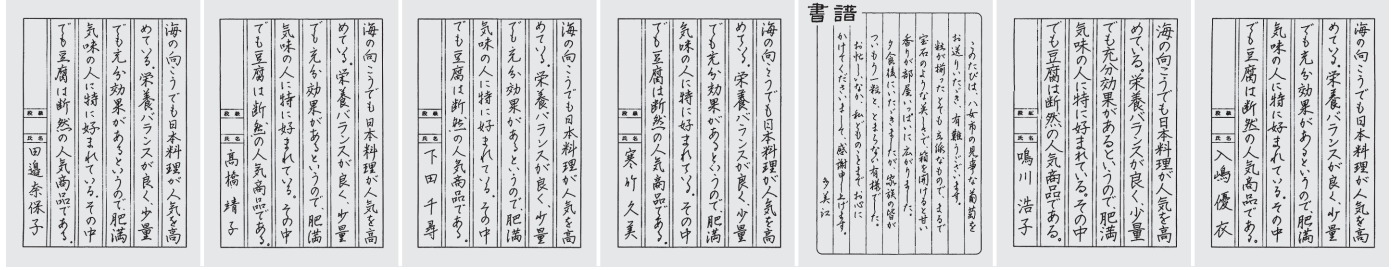 海の向こうでも日本料理が人気を高
めている。栄養バランスが良く、少量
でも充分効果があるというので、肥満
気味の人に特に好まれている。その中
でも豆腐は断然の人気商品である。
段級 氏名 田邉奈保子
海の向こうでも日本料理が人気を高
めている。栄養バランスが良く、少量
でも充分効果があるというので、肥満
気味の人に特に好まれている。その中
でも豆腐は断然の人気商品である。
段級 氏名 髙橋靖子
海の向こうでも日本料理が人気を高
めている。栄養バランスが良く、少量
でも充分効果があるというので、肥満
気味の人に特に好まれている。その中
でも豆腐は断然の人気商品である。
段級 氏名 下田千寿
海の向こうでも日本料理が人気を高
めている。栄養バランスが良く、少量
でも充分効果があるというので、肥満
気味の人に特に好まれている。その中
でも豆腐は断然の人気商品である。
段級 氏名 寒竹久美
書譜
このたびは、八女市の見事な葡萄を
お送りいただき、有難うございます。
粒が揃ったとても立派なもので、まるで
宝石のような美しさで、箱を開けると甘い
香りが部屋いっぱいに広がりました。
夕食後にいただきましたが、家族の皆が
ついもう一粒と、とまらない有様でした。
お忙しいなか、私どものことまでお心に
かけてくださいまして、感謝申し上げます。
多美江
海の向こうでも日本料理が人気を高
めている。栄養バランスが良く、少量
でも充分効果があるというので、肥満
気味の人に特に好まれている。その中
でも豆腐は断然の人気商品である。
段級 氏名 鳴川浩子
海の向こうでも日本料理が人気を高
めている。栄養バランスが良く、少量
でも充分効果があるというので、肥満
気味の人に特に好まれている。その中
でも豆腐は断然の人気商品である。
段級 氏名 入嶋優衣